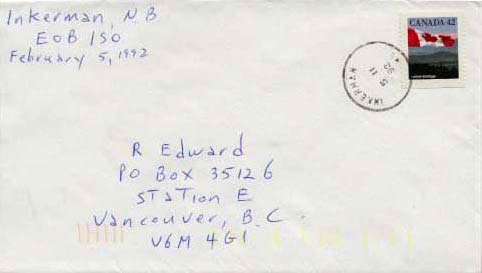 Inkerman, N B
E0B 1S0
February 5, 1992
CANADA 42
INKERMAN
5 II
92
R Edward
PO Box 35126
Station E
Vancouver, B.C.
V6M 4G1